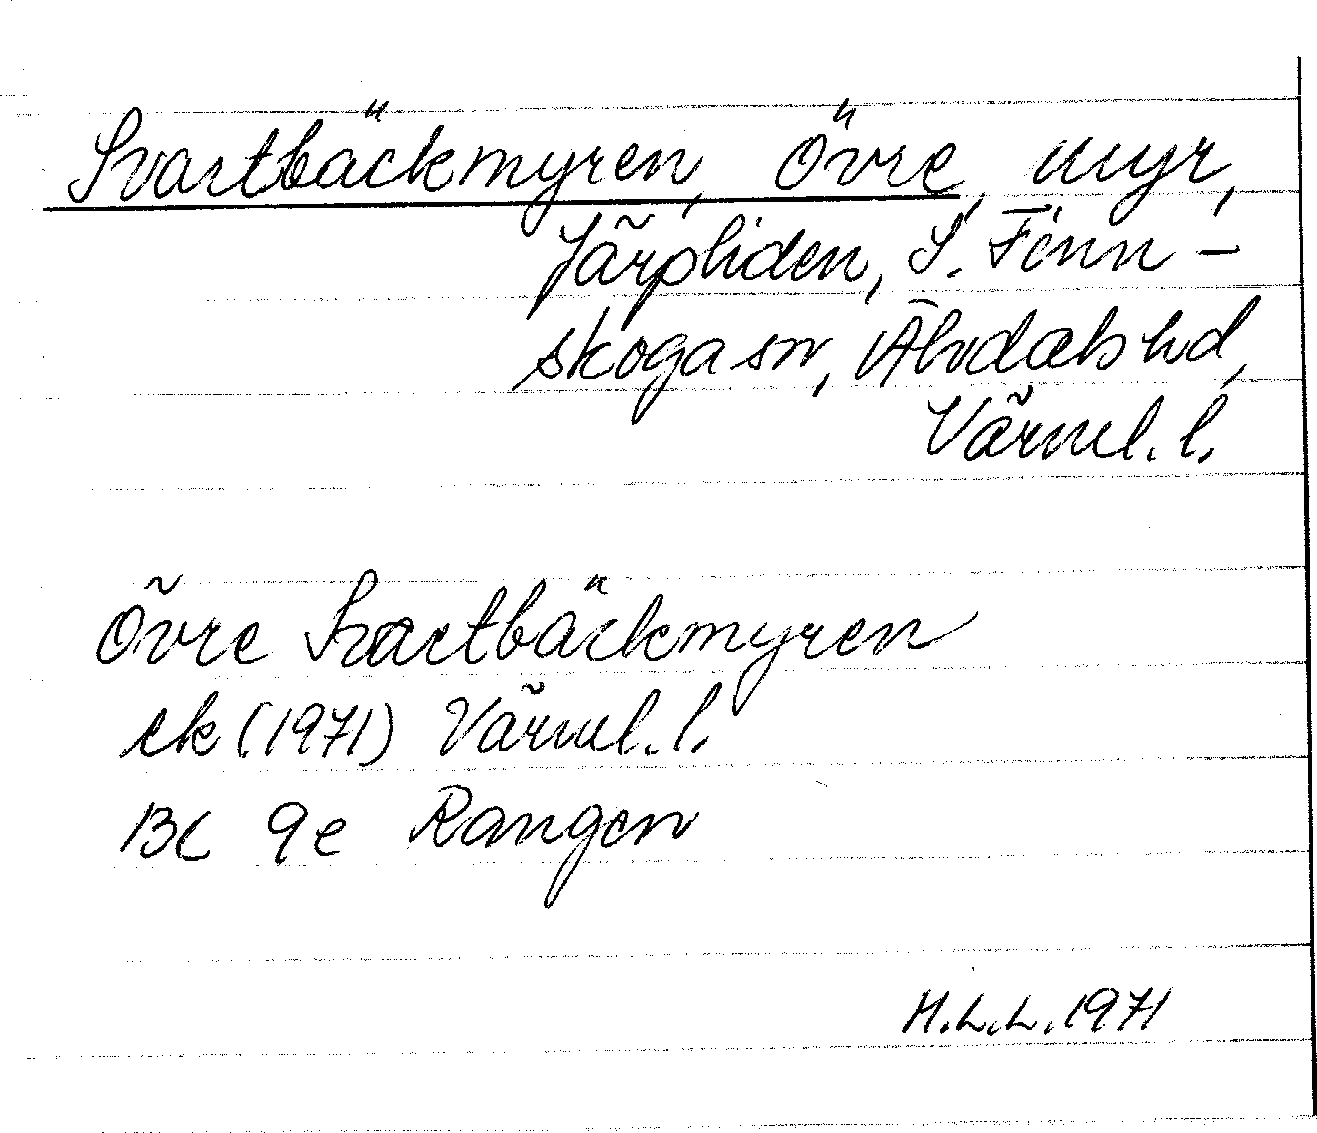 Svartbäckmyren, Övre, myr,
Järpliden, S. Finn-
skoga sn, Älvdals hd,
Värml. l.
Övre Svartbäckmyren
ek (1971) Värml. l.
BC 9e Rangen
H.L.L. 1971